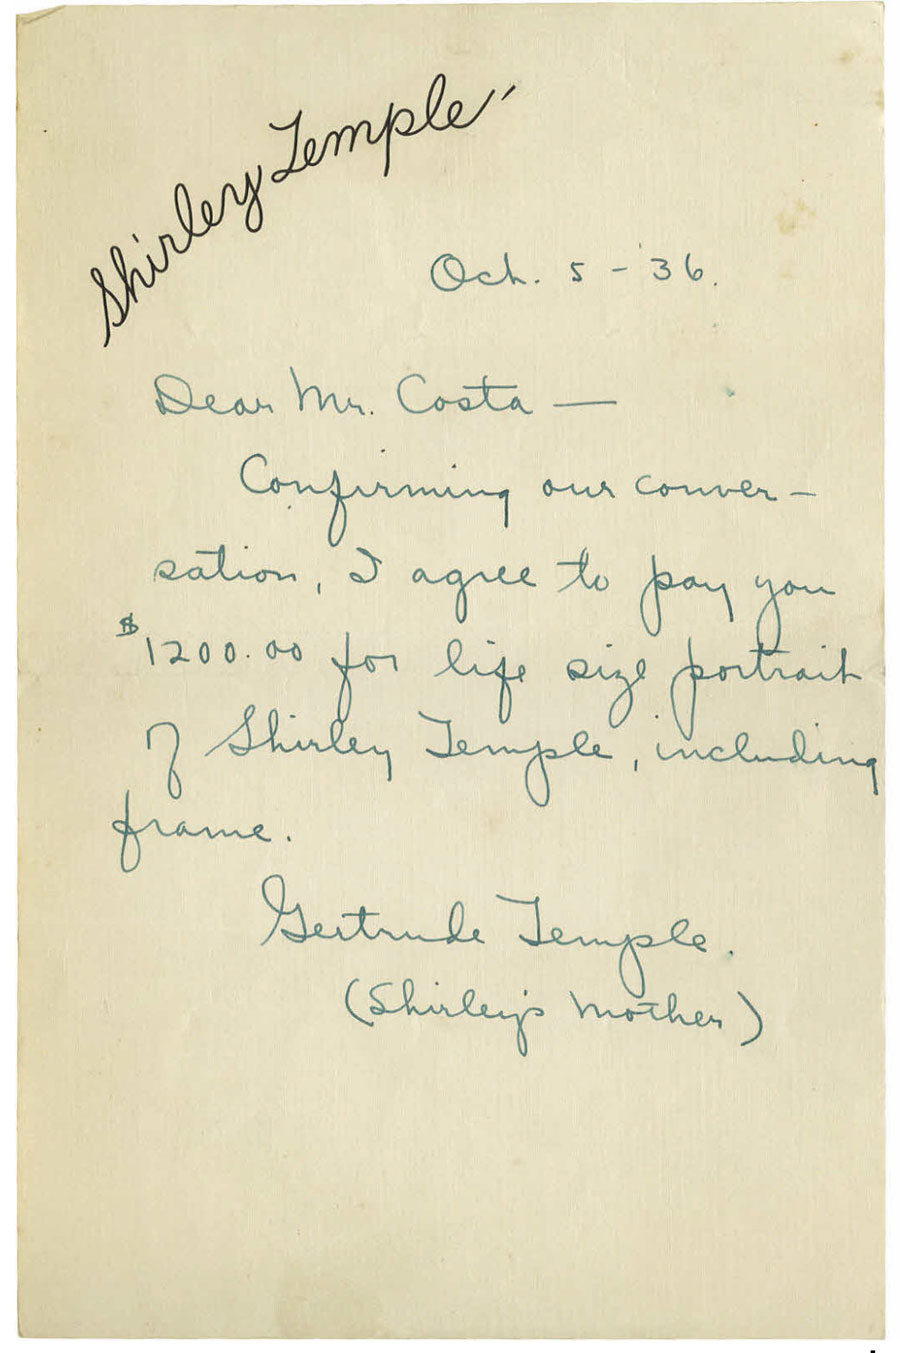 Shirley Temple -
Oct. 5 - '36.
Dear Mr. Costa —
Confirming our conver-
sation, I agree to pay you
$1200.00 for life size portrait
of Shirley Temple, including
frame.
Gertrude Temple.
(Shirley's Mother)